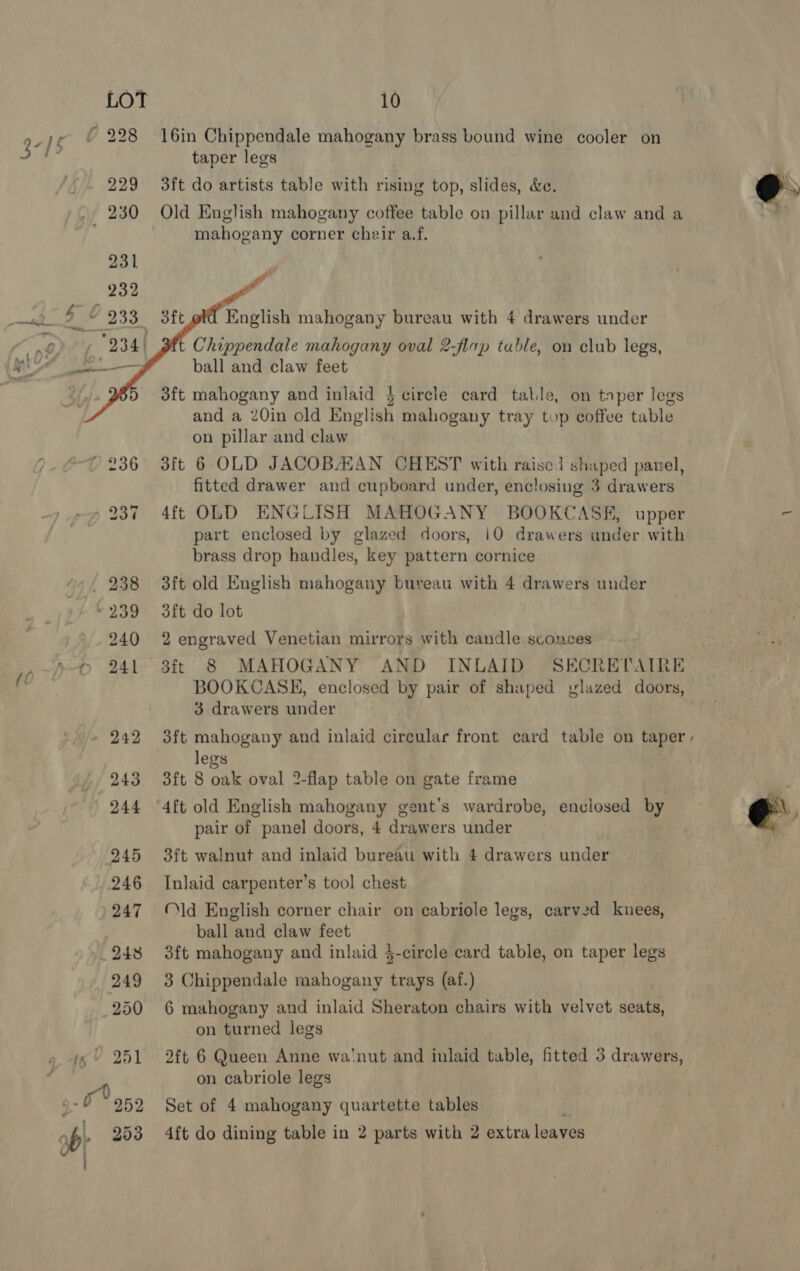 LOT 10
228 16in Chippendale mahogany brass bound wine cooler on
taper legs
229 3ft do artists table with rising top, slides, &c.
230 Old English mahogany coffee table on pillar and claw and a
mahogany corner chair a.f.
231
232
233 3ft old English mahogany bureau with 4 drawers under
234 3ft Chippendale mahogany oval 2-flap table, on club legs,
ball and claw feet
235 3ft mahogany and inlaid ½ circle card table, on taper legs
and a 20in old English mahogany tray top coffee table
on pillar and claw
236 3ft 6 OLD JACOBÆAN CHEST with raised shaped panel,
fitted drawer and cupboard under, enclosing 3 drawers
237 4ft OLD ENGLISH MAHOGANY BOOKCASE, upper
part enclosed by glazed doors, 10 drawers under with
brass drop handles, key pattern cornice
238 3ft old English mahogany bureau with 4 drawers under
239 3ft do lot
240 2 engraved Venetian mirrors with candle sconces
241 3ft 8 MAHOGANY AND INLAID SECRETAIRE
BOOKCASE, enclosed by pair of shaped glazed doors,
3 drawers under
242 3ft mahogany and inlaid circular front card table on taper
legs
243 3ft 8 oak oval 2-flap table on gate frame
244 4ft old English mahogany gent's wardrobe, enclosed by
pair of panel doors, 4 drawers under
245 3ft walnut and inlaid bureau with 4 drawers under
246 Inlaid carpenter's tool chest
247 Old English corner chair on cabriole legs, carved knees,
ball and claw feet
248 3ft mahogany and inlaid ½-circle card table, on taper legs
249 3 Chippendale mahogany trays (af.)
250 6 mahogany and inlaid Sheraton chairs with velvet seats,
on turned legs
251 2ft 6 Queen Anne walnut and inlaid table, fitted 3 drawers,
on cabriole legs
252 Set of 4 mahogany quartette tables
253 4ft do dining table in 2 parts with 2 extra leaves